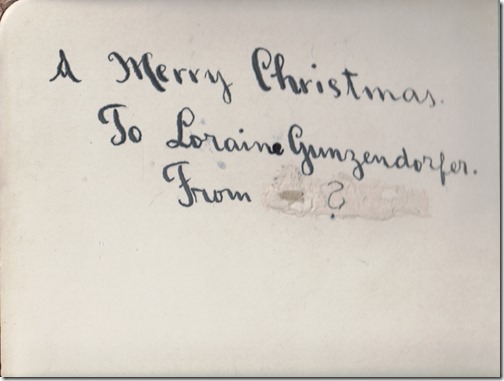 A Merry Christmas.
To Loraine Gunzendorfer.
From ?